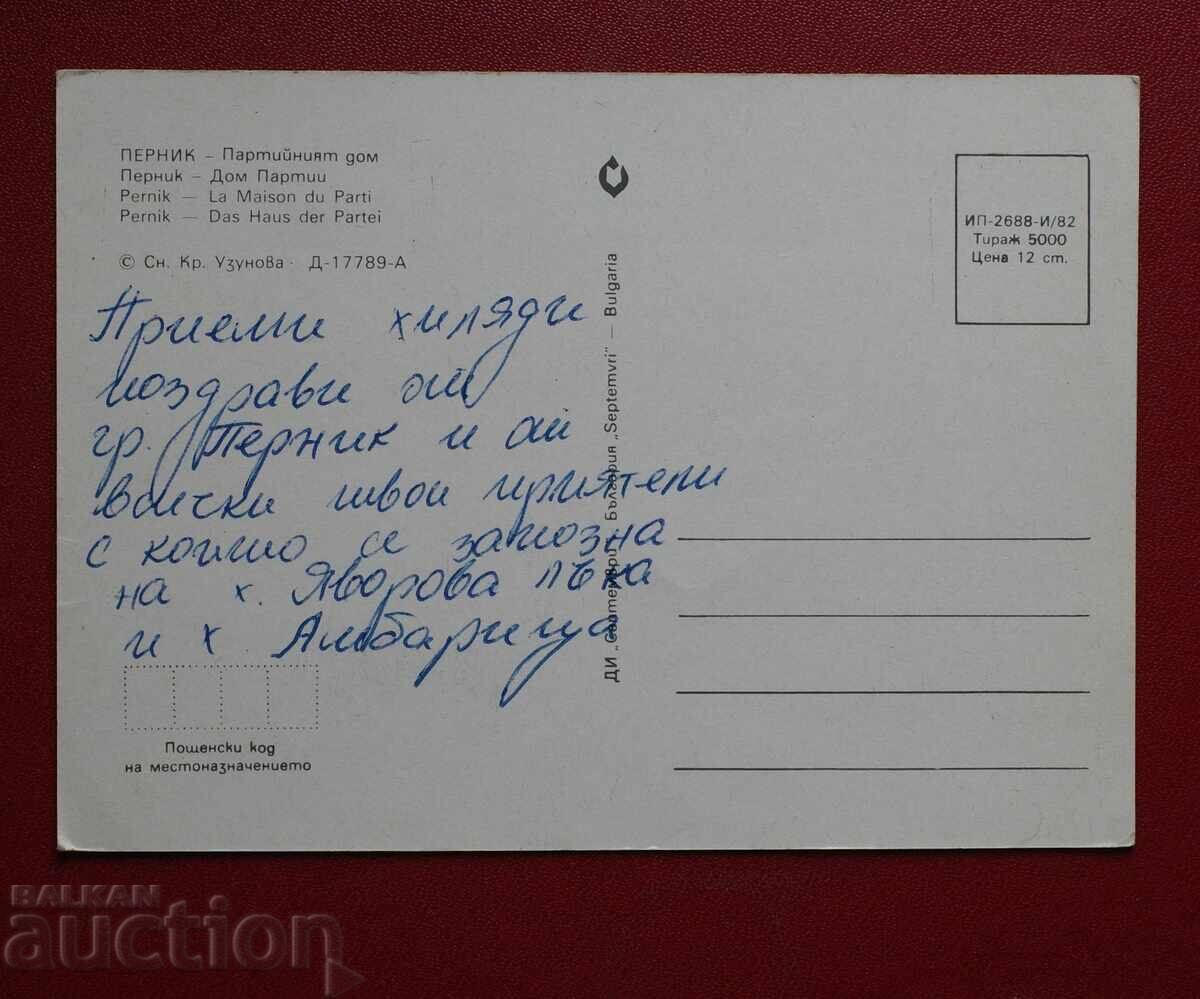 ПЕРНИК – Партийният дом
Перник – Дом Партии
Pernik — La Maison du Parti
Pernik — Das Haus der Partei
© Сн. Кр. Узунова · Д-17789-А
Приеми хиляди
поздрави от
гр. Перник и от
всички твои приятели
с които се запозна
на х. Яворова лъка
и х. Амбарица
Пощенски код
на местоназначението
ДИ „Септември“ — България „Septemvri“ — Bulgaria
ИП-2688-И/82
Тираж 5000
Цена 12 ст.
BALKAN
auction